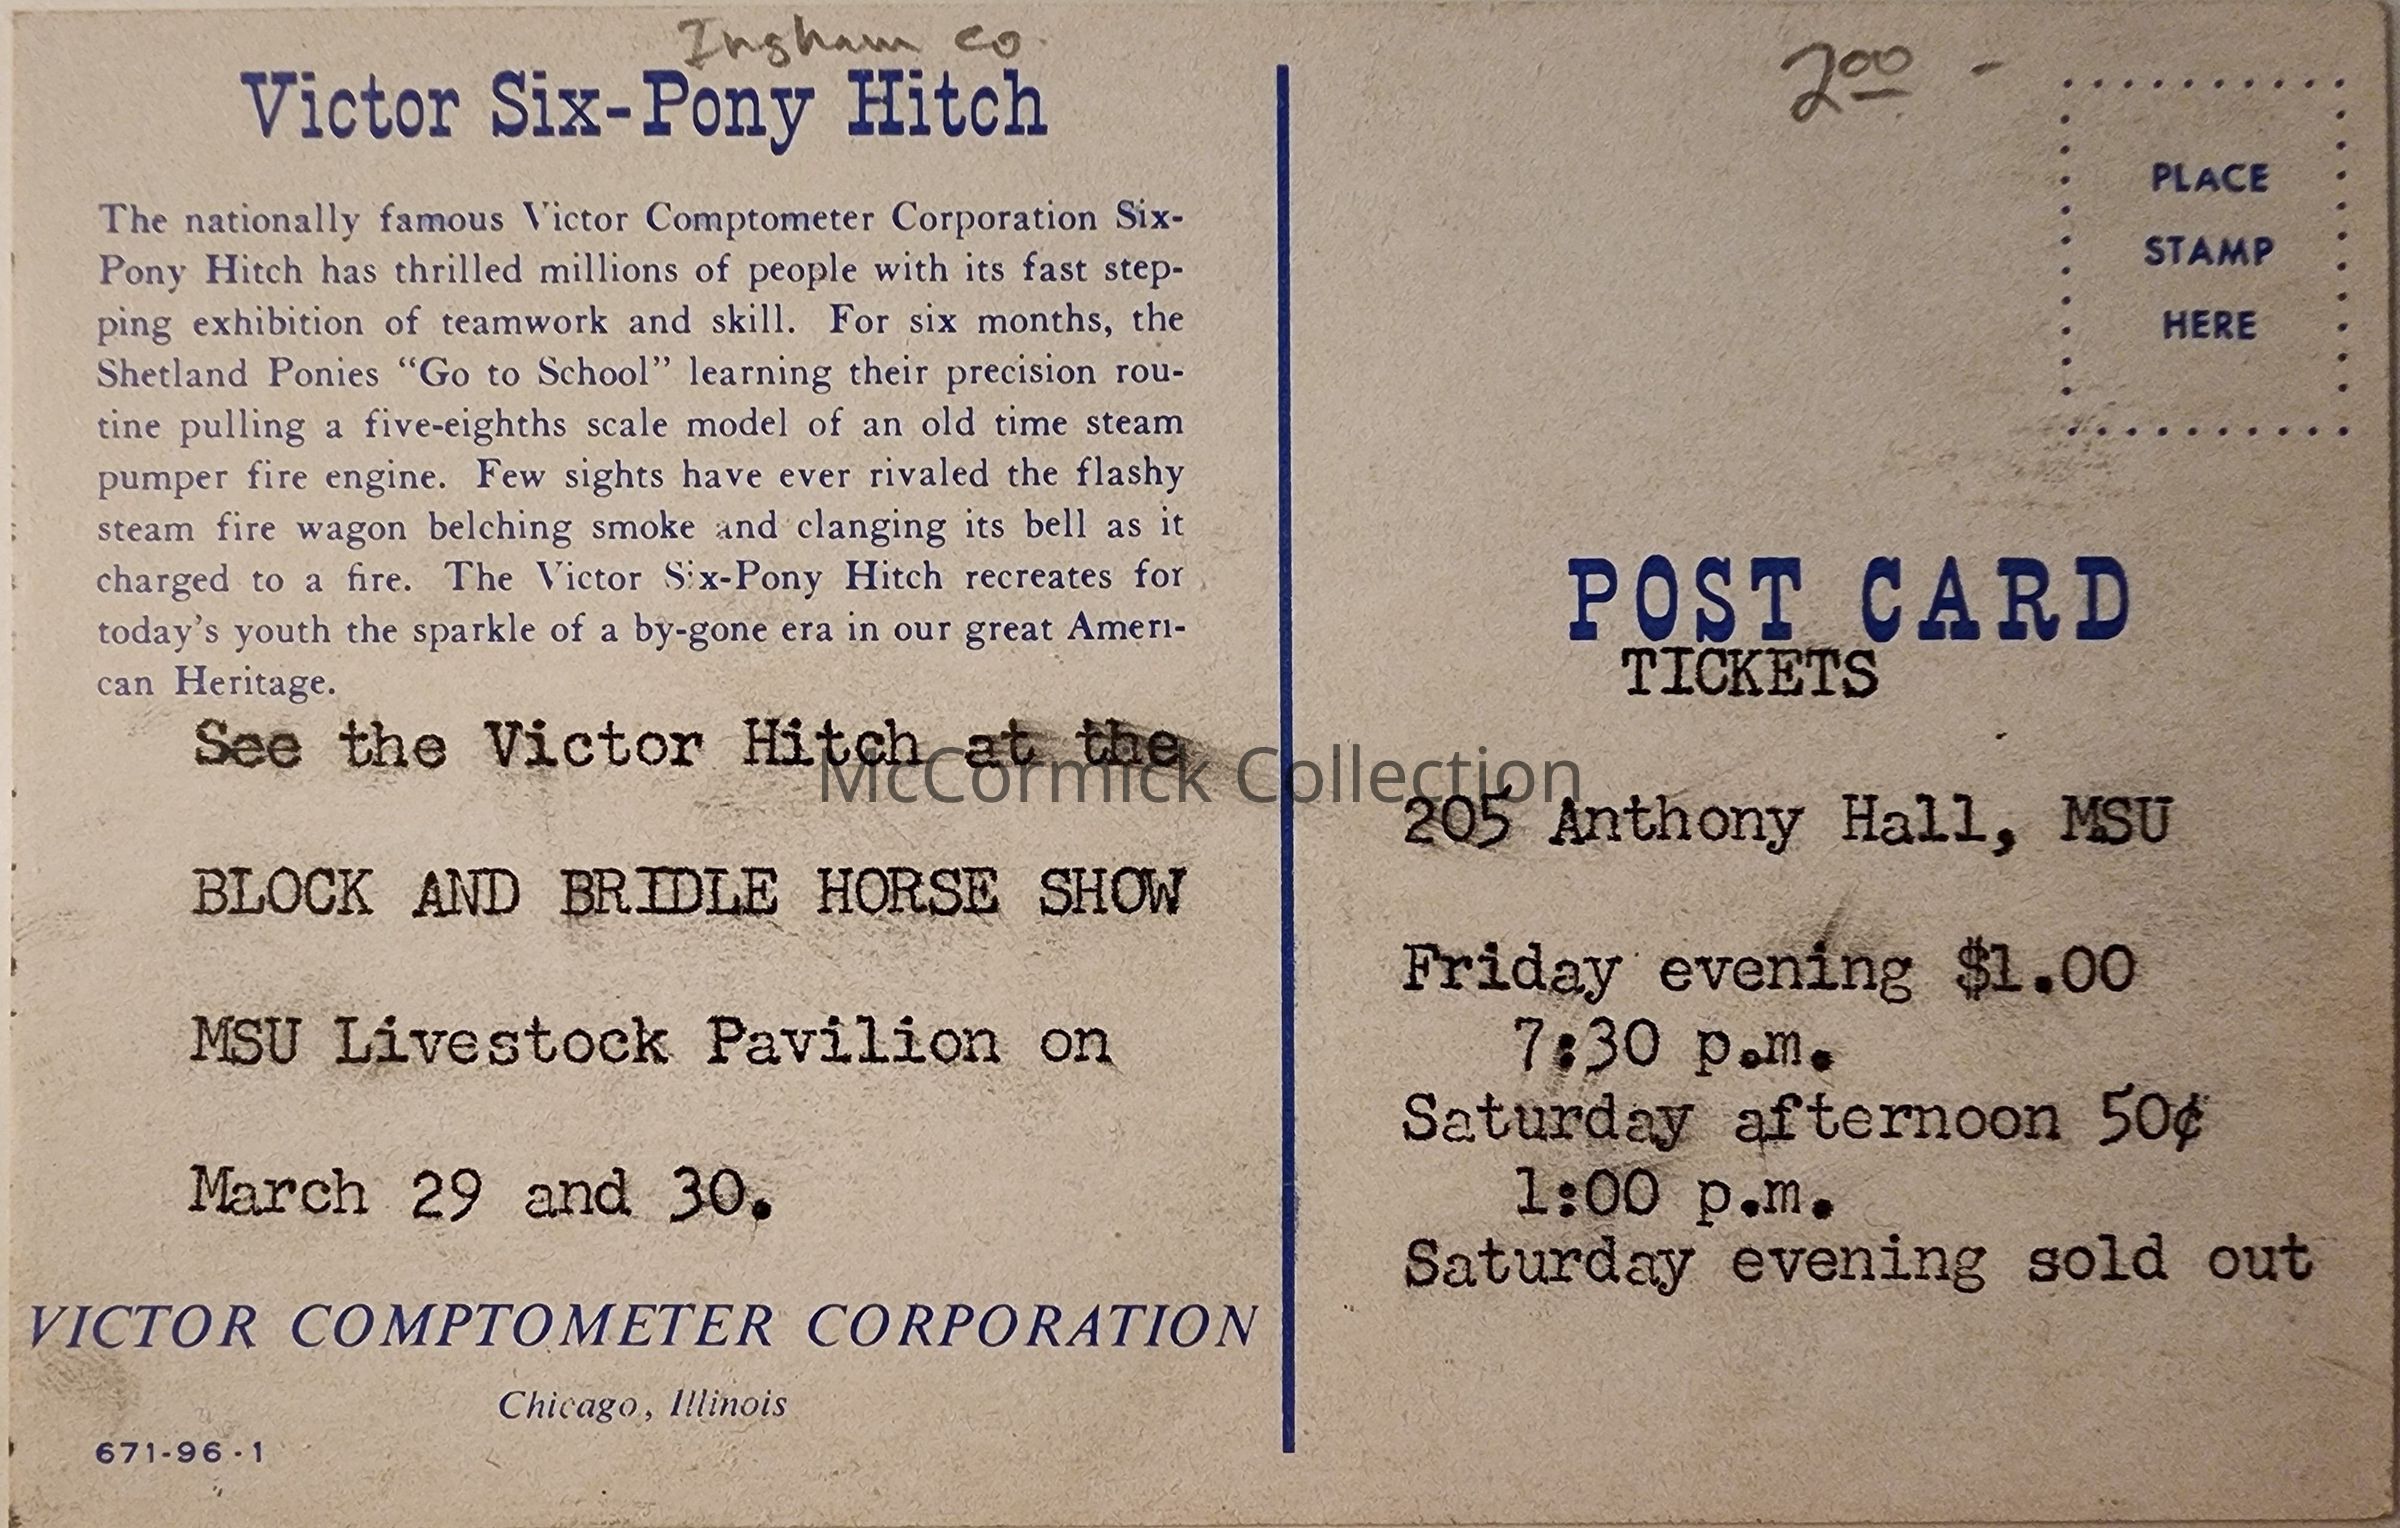 Ingham Co.
Victor Six-Pony Hitch
The nationally famous Victor Comptometer Corporation Six-
Pony Hitch has thrilled millions of people with its fast step-
ping exhibition of teamwork and skill. For six months, the
Shetland Ponies “Go to School” learning their precision rou-
tine pulling a five-eighths scale model of an old time steam
pumper fire engine. Few sights have ever rivaled the flashy
steam fire wagon belching smoke and clanging its bell as it
charged to a fire. The Victor Six-Pony Hitch recreates for
today’s youth the sparkle of a by-gone era in our great Ameri-
can Heritage.
See the Victor Hitch at the
BLOCK AND BRIDLE HORSE SHOW
MSU Livestock Pavilion on
March 29 and 30.
VICTOR COMPTOMETER CORPORATION
Chicago, Illinois
671-96-1
200 -
PLACE
STAMP
HERE
POST CARD
TICKETS
205 Anthony Hall, MSU
Friday evening $1.00
7:30 p.m.
Saturday afternoon 50¢
1:00 p.m.
Saturday evening sold out
McCormick Collection